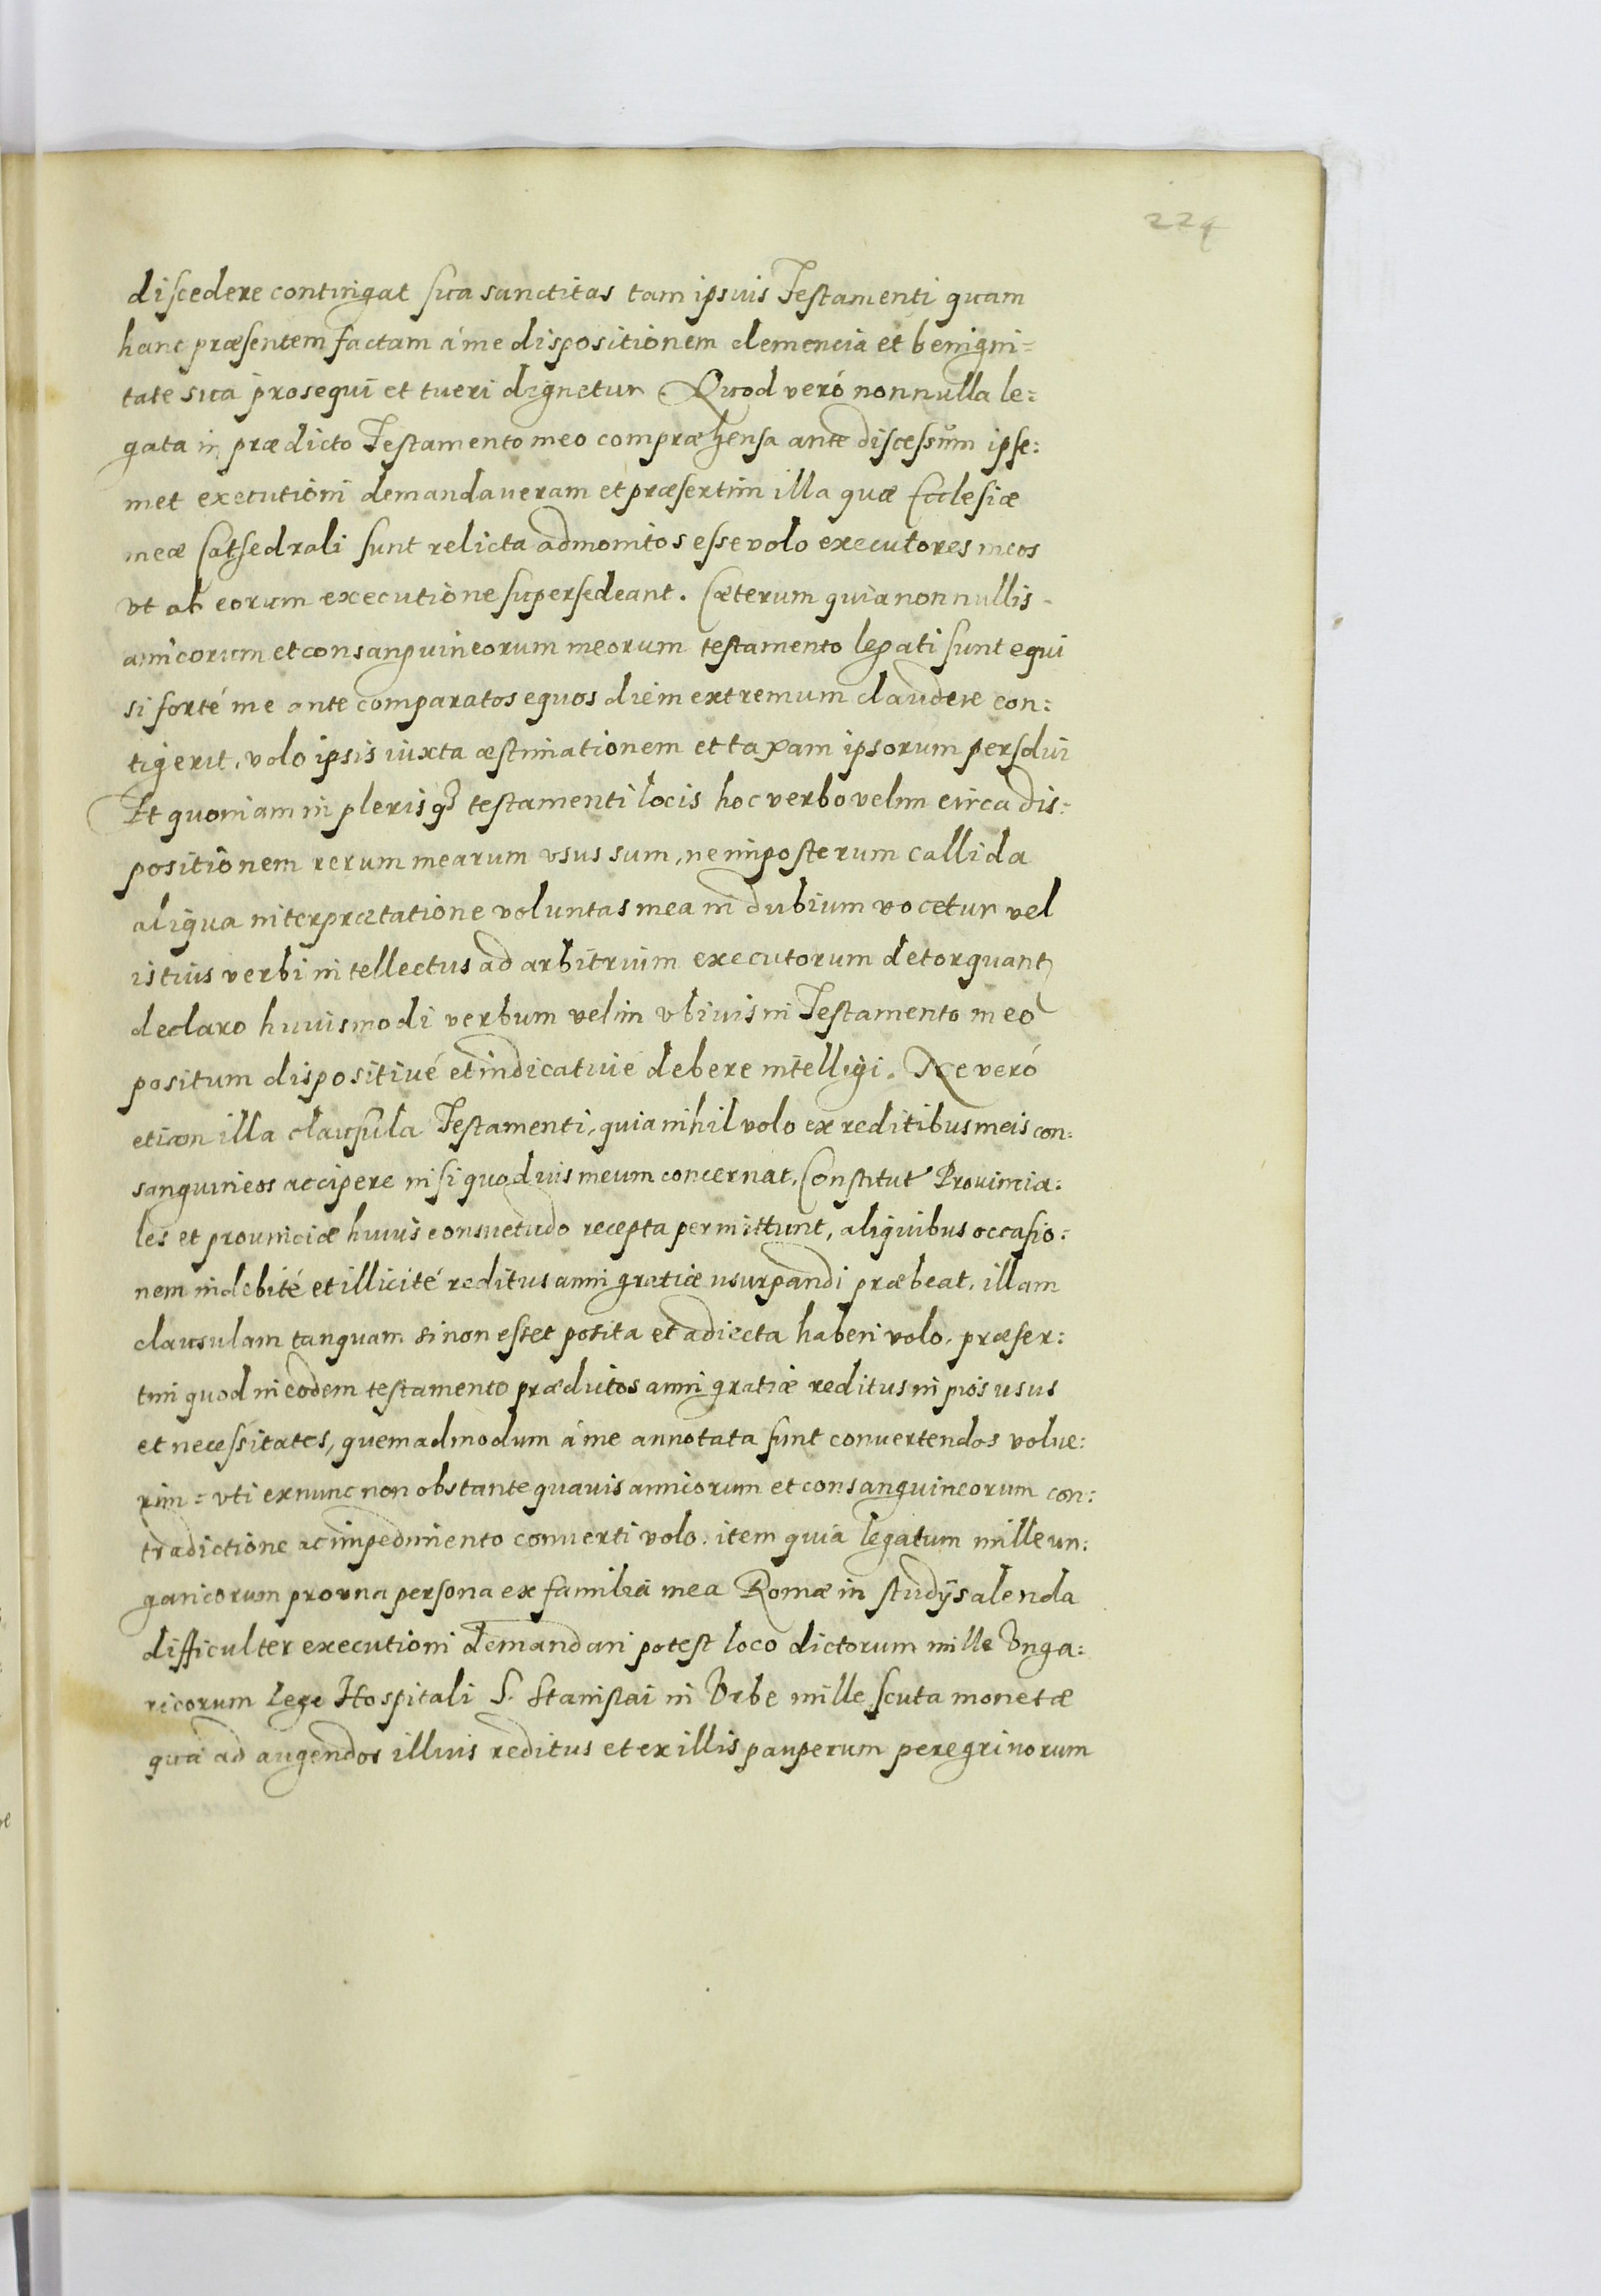 224
discedere contingat sua sanctitas tam ipsius Testamenti quam
hanc præsentem factam á me dispositionem clemencia et benigni=
tate sua prosequi et tueri dignetur. Quod veró nonnulla le:
gata in prædicto Testamento meo compræhensa ante discessum ipse:
met executioni demandaveram et præsertim illa quæ Ecclesiæ
meæ Cathedrali sunt relicta admonitos esse volo executores meos
vt ab eorum executione supersedeant. Cæterum quia nonnullis
amicorum et consanguineorum meorum testamento legati sunt equi
si forté me ante comparatos equos diem extremum claudere con:
tigerit, volo ipsis iuxta æstimationem et taxam ipsorum persolui
Et quoniam in plerisq3 testamenti locis hoc verbo velim circa dis:
positionem rerum mearum vsus sum, ne in posterum callida
aliqua interprætatione voluntas mea in dubium vocetur vel
istius verbi intellectus ad arbitrium executorum detorquant
declaro huiusmodi verbum velim vbiuis in Testamento meo
positum dispositiué et indicatiué debere intelligi. Ne veró
etiam illa clausula Testamenti, quia nihil volo ex reditibus meis con:
sanguineos accipere nisi quod ius meum concernat, Constitut Prouincia:
les et prouinciæ huius consuetudo recepta permittunt, aliquibus occasio:
nem indebité et illicité reditus anni gratiæ usurpandi præbeat, illam
clausulam tanquam si non esset posita et adiecta haberi volo, præser:
tim quod in eodem testamento prædictos anni gratiæ reditus in pios usus
et necessitates, quemadmodum á me annotata sunt conuertendos volue:
rim = vti ex nunc non obstante quauis amicorum et consanguineorum con:
tradictione ac impedimento conuerti volo. item quia legatum mille un:
garicorum pro vna persona ex familia mea Romæ in studijs alenda
difficulter executioni demandari potest loco dictorum mille Vnga:
ricorum lego Hospitali S. Stanislai in Vrbe mille scuta monetæ
quæ ad augendos illius reditus et ex illis pauperum peregrinorum